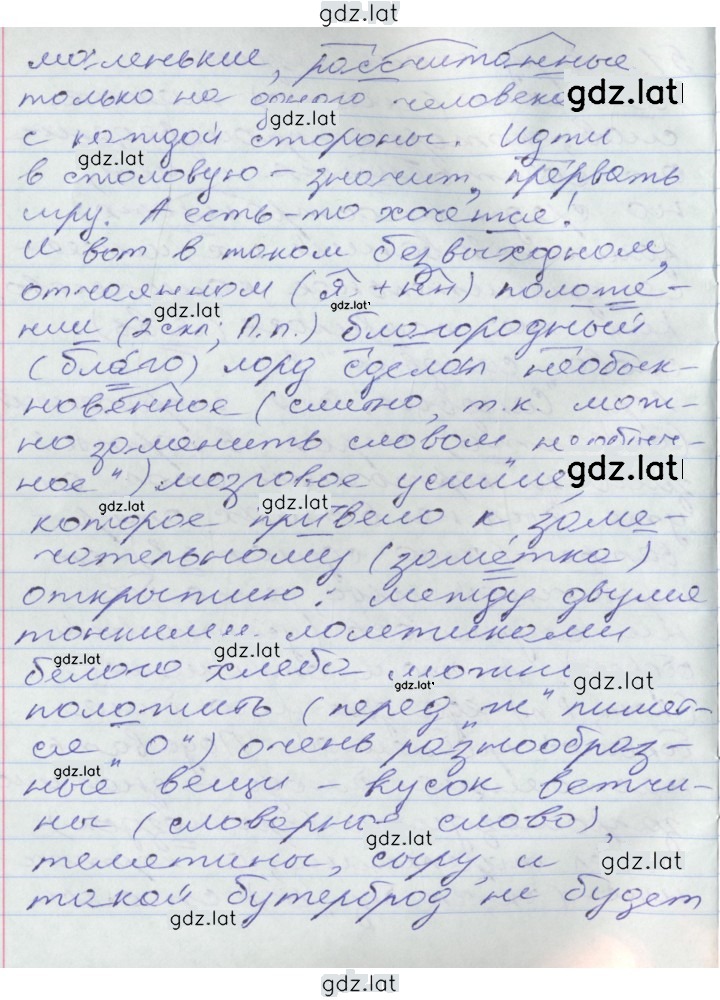 gdz.lat
маленькие, рассчитанные
только на одного человека
gdz.lat
gdz.lat
с каждой стороны. Идти
gdz.lat
в столовую – значит, прервать
игру. А есть-то хочется!
И вот в таком безвыходном,
gdz.lat
отчаянном (я + нн) положе-
gdz.lat
gdz.lat
нии (2 скл; П.п.) благородный
(благо) лорд сделал необык-
новенное (слитно, т.к. мож-
но заменить словом необыч-
ное") мозговое усилие,
gdz.lat
gdz.lat
gdz.lat
которое привело к заме-
чательному (заметка)
открытию: между двумя
тонкими ломтиками
gdz.lat
белого хлеба можно
gdz.lat
gdz.lat
положить (перед "ж" пишет-
ся "о") очень разнообраз-
gdz.lat
ные вещи – кусок ветчи-
ны (словарное слово),
gdz.lat
телятины, сыру, и
gdz.lat
такой бутерброд не будет
gdz.lat
gdz.lat